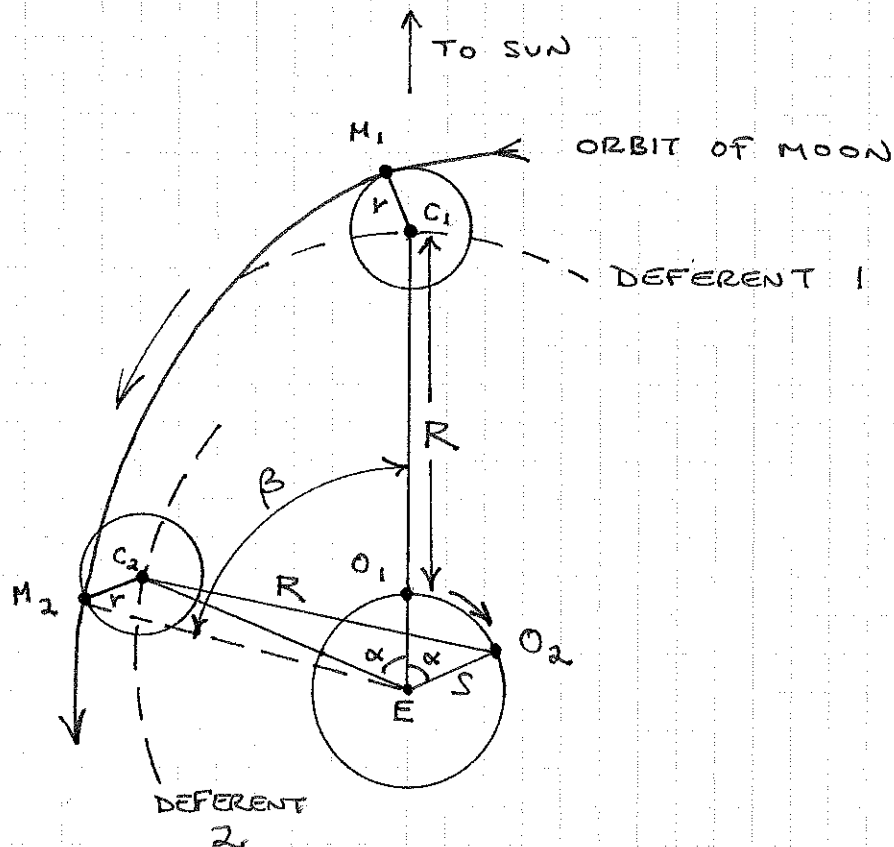 TO SUN
M1
ORBIT OF MOON
r
C1
DEFERENT 1
R
β
C2
R
O1
M2
r
α
α
O2
S
E
DEFERENT
2